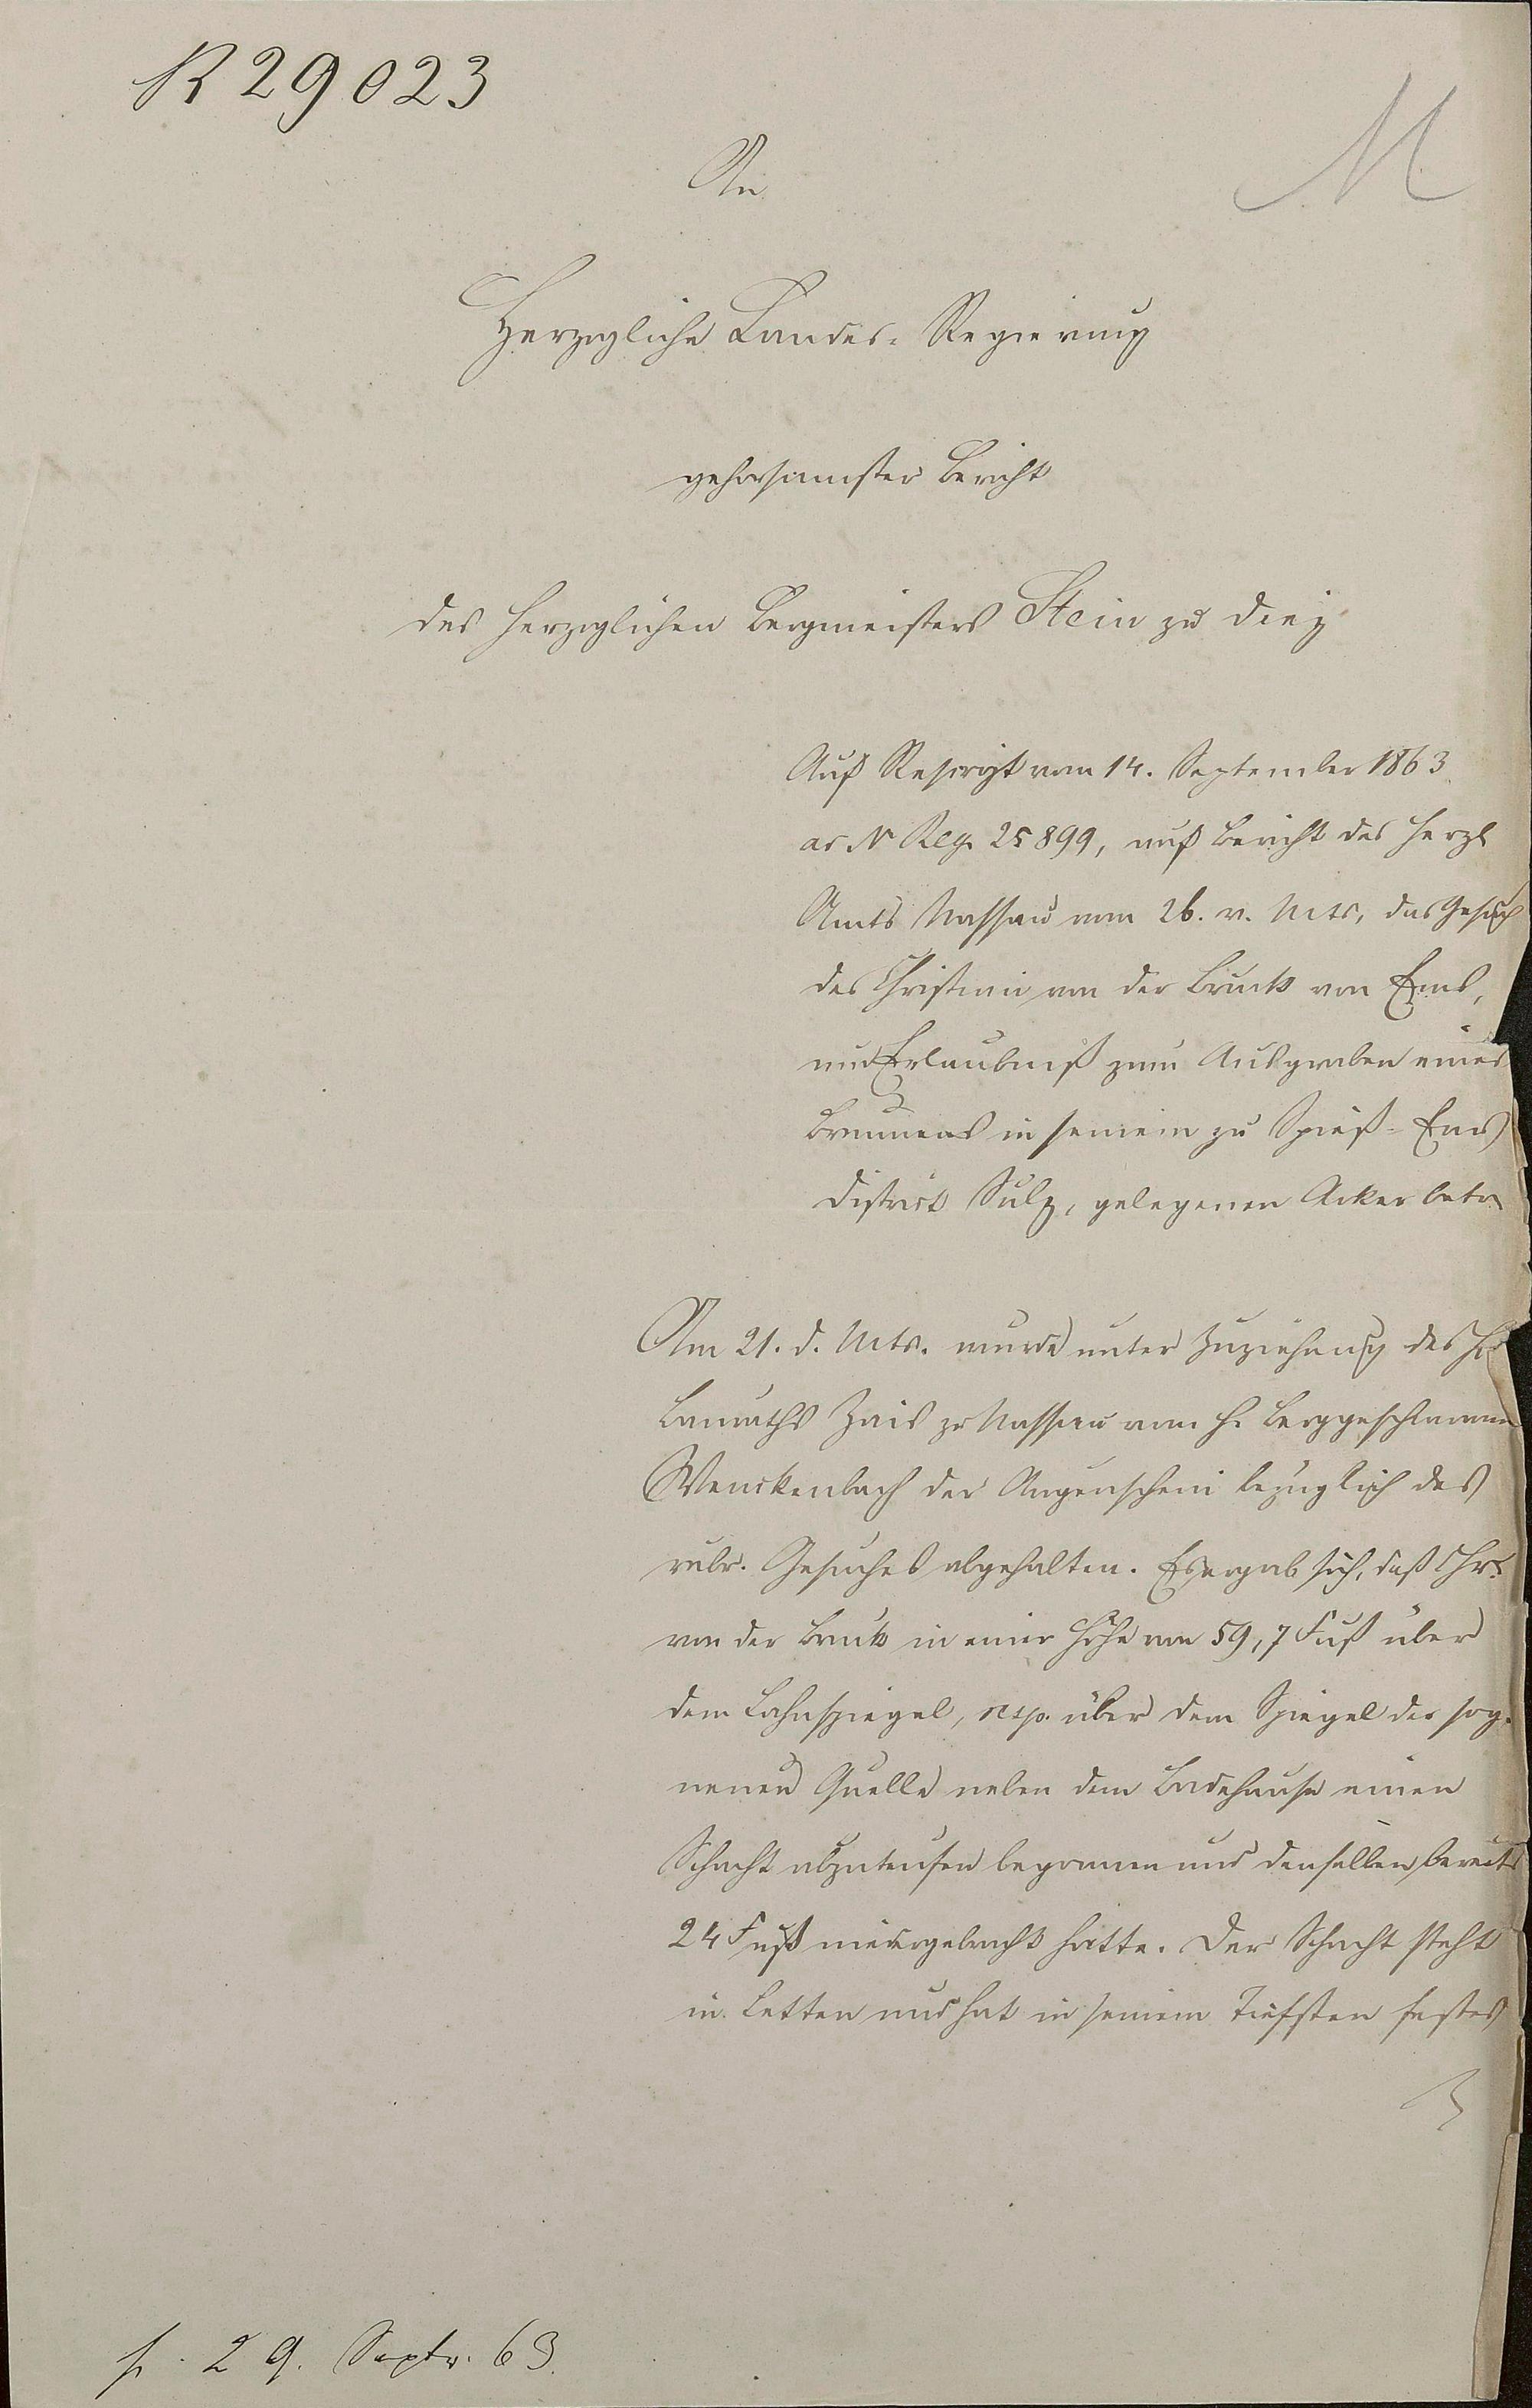 R 29023
M
An
Herzogliche Landes-Regierung
gehorsamster Bericht
des Herzoglichen Bergmeisters Stein zu Diez
Auf Rescript vom 14. September 1863
ad N Reg. 25899, auf Bericht des Herzl
Amts Nassau vom 26. v. Mts, das Gesuch
des Christian von der Bruck von Ems,
um Erlaubniß zum Ausgraben eines
Brunnens in seinem zu Spieß-Ems
District Sulz, gelegenen Acker betr.
Am 21. d. Mts. wurde unter Zuziehung des H.
Bauraths Zais zu Nassau vom H. Berggeschwornen
Wenckenbach der Augenschein bezüglich des
rubr. Gesuches abgehalten. Es ergab sich, daß Chr.
von der Bruck in einer Höhe von 59,7 Fuß über
dem Lahnspiegel, resp. über dem Spiegel der sog.
neuen Quelle neben dem Badehause einen
Schacht abzuteufen begonnen und denselben bereits
24 Fuß niedergebracht hatte. Der Schacht steht
in Letten und hat in seinem Tiefsten festes
p. 29. Septr. 63.